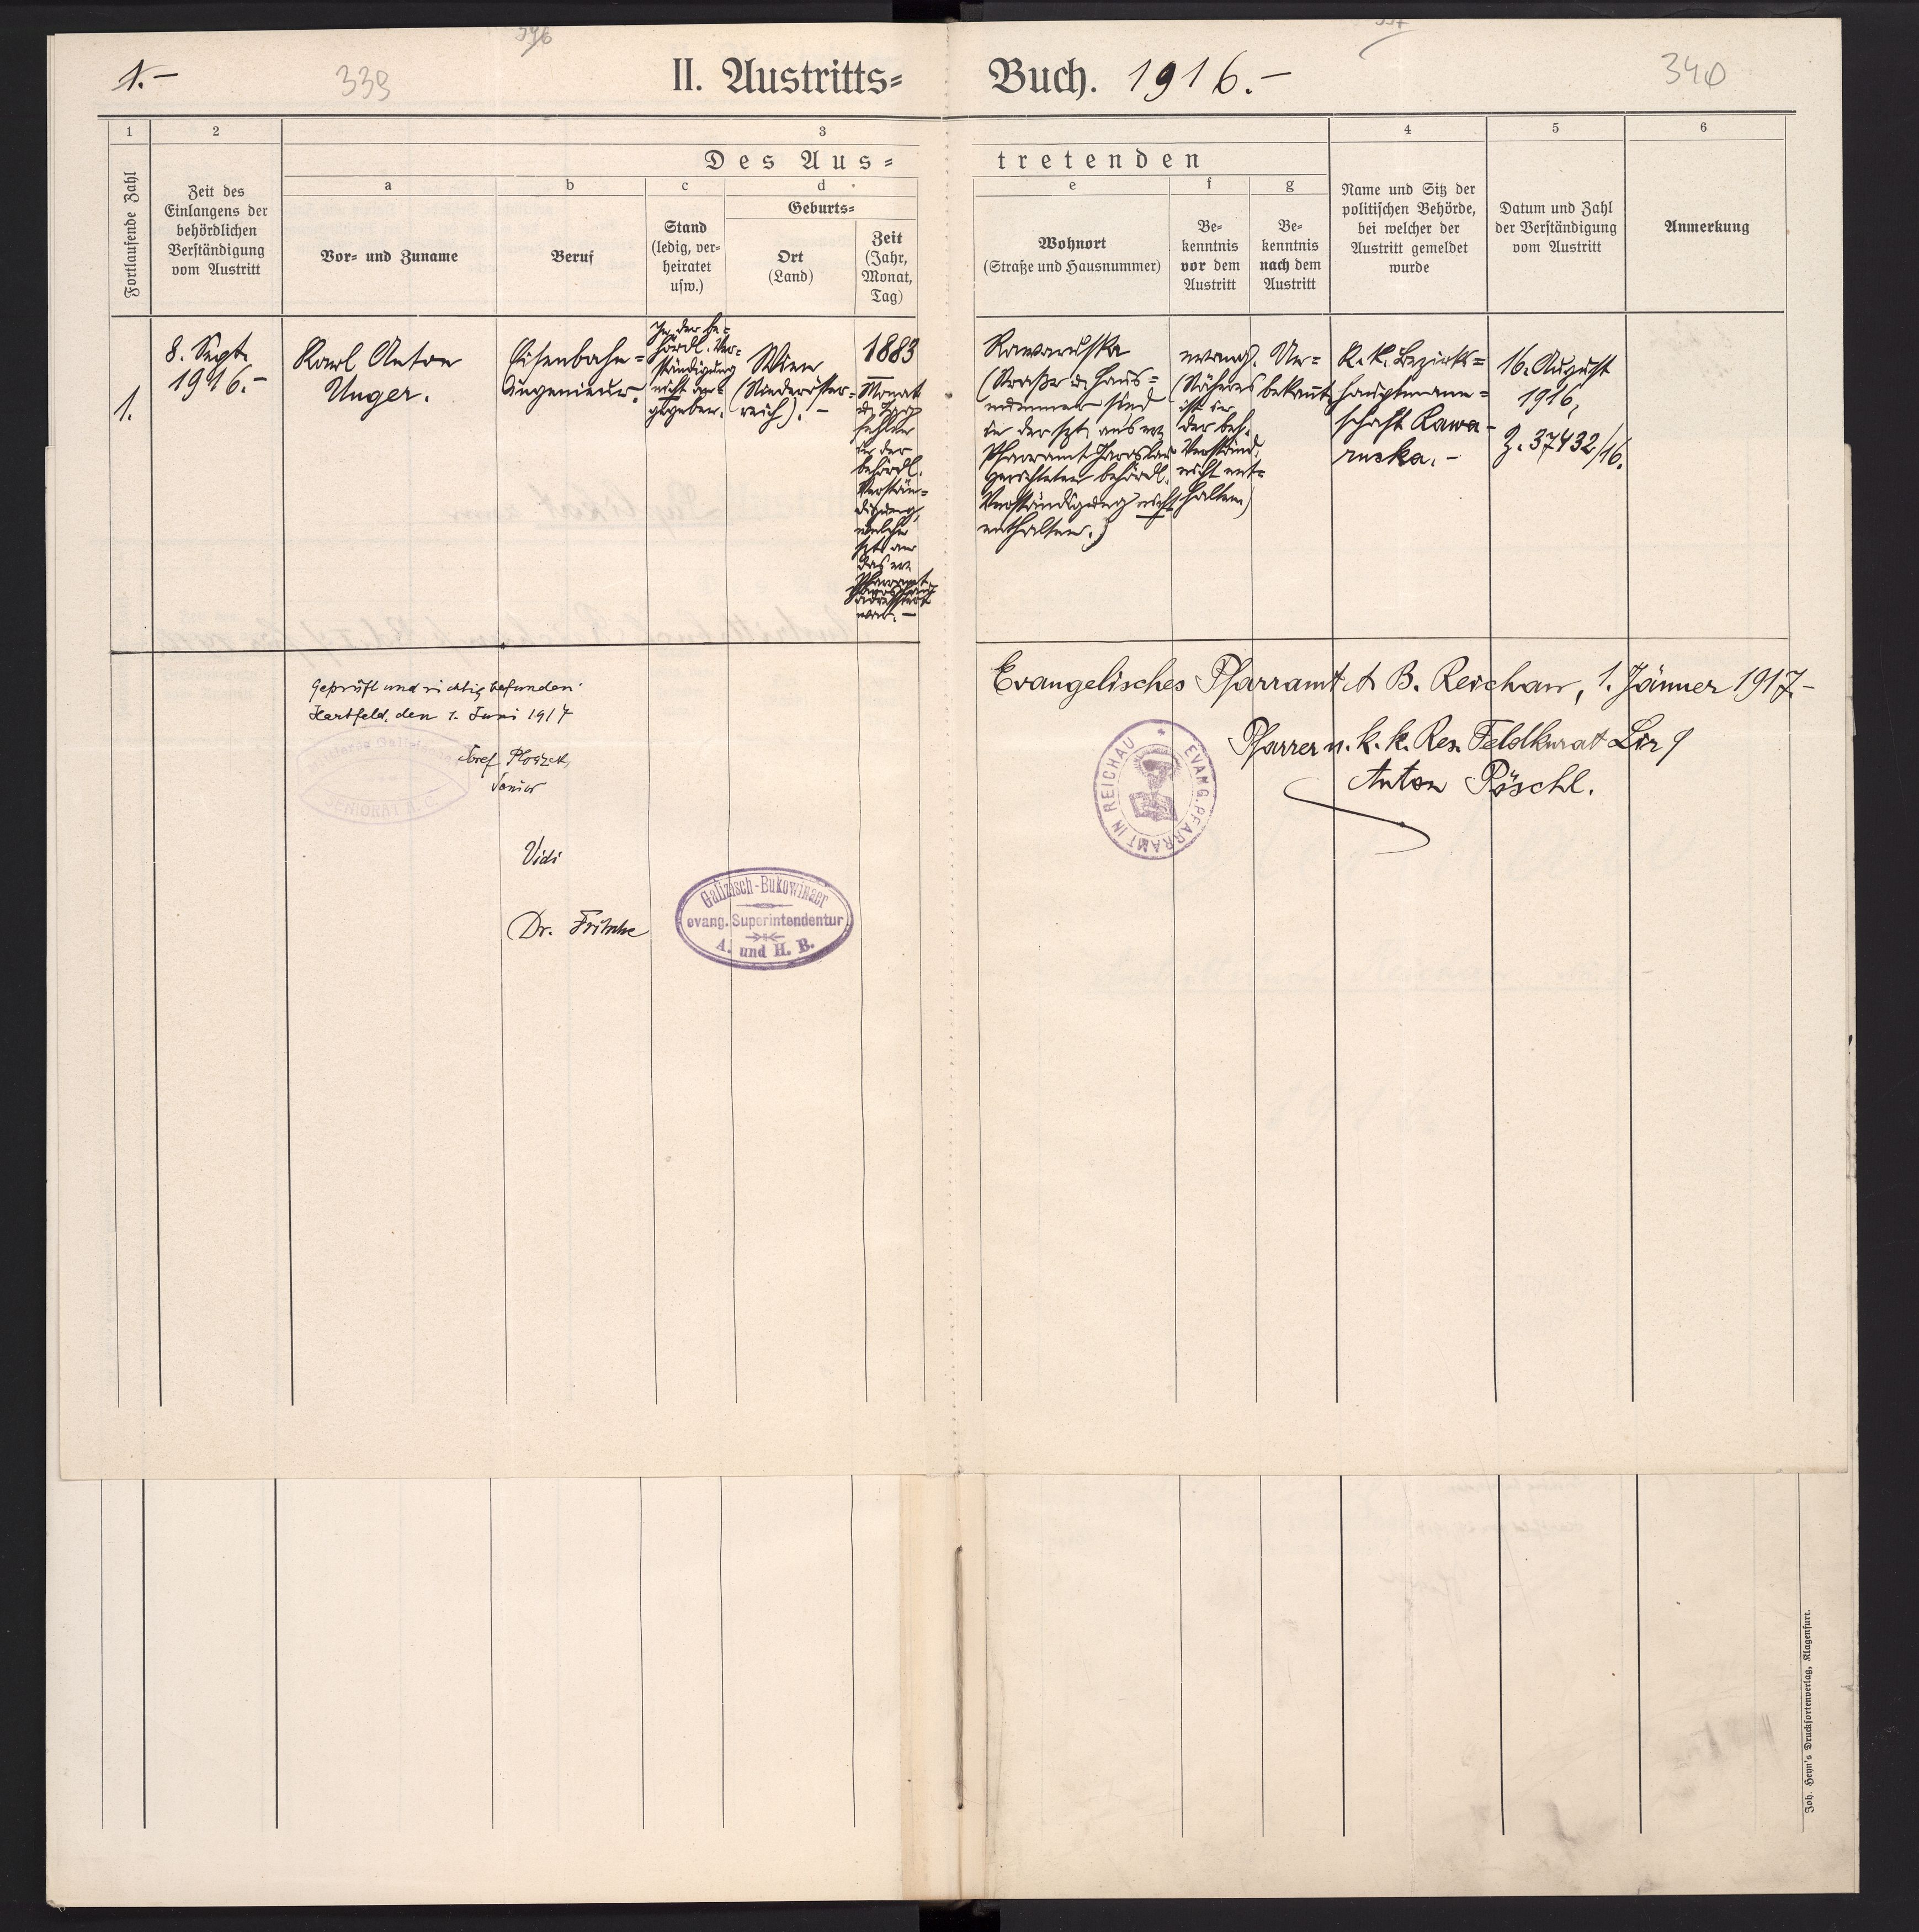 1.–
339
396
II. Austritts=
Buch. 1916.–
340
1
2
3
4
5
6
Des Aus=
tretenden
Fortlaufende Zahl
Zeit des
Einlangens der
behördlichen
Verständigung
vom Austritt
a
Vor- und Zuname
b
Beruf
c
Stand
(ledig, ver-
heiratet
usw.)
d
Geburts=
Ort
(Land)
Zeit
(Jahr,
Monat,
Tag)
e
Wohnort
(Straße und Hausnummer)
f
Be-
kenntnis
vor dem
Austritt
g
Be-
kenntnis
nach dem
Austritt
Name und Sitz der
politischen Behörde,
bei welcher der
Austritt gemeldet
wurde
Datum und Zahl
der Verständigung
vom Austritt
Anmerkung
1.
8. Sept.
1916.–
Karl Anton
Unger.
Eisenbahn=
Ingenieur.
In der be=
hördl. Ver=
ständigung
nicht an=
gegeben.
Wien
(Niederöster=
reich).–
1883
Monat
u. Tag
fehlen
in der
behördl.
Verstän=
digung,
welche
szt. an
das ev.
Pfarramt
adressiert
war.–
Rawaruska
(Straße u. Haus=
nummer sind
in der szt. ans ev.
Pfarramt Jaroslau
gerichteten behördl.
Verständigung nicht
enthalten.)
evang.
(Näheres
ist in
der beh.
Verständ.
nicht ent=
halten)
Un=
bekannt
K. k. Bezirks=
hauptmann=
schaft Rawa-
ruska.–
16. August
1916,
Z. 37432/16.
Geprüft und richtig befunden.
Hartfeld, den 1. Juni 1917
Josef
Senior
SENIORAT A. C.
Vidi
Dr. Fritsche
Galizisch-Bukowinaer
evang. Superintendentur
A. und H. B.
Evangelisches Pfarramt A B. Reichau, 1. Jänner 1917.–
Pfarrer u. k. k. Res. Feldkurat
Anton Pöschl.
EVANG. PFARRAMT IN REICHAU
Joh. Heyn's Drucksortenverlag, Klagenfurt.